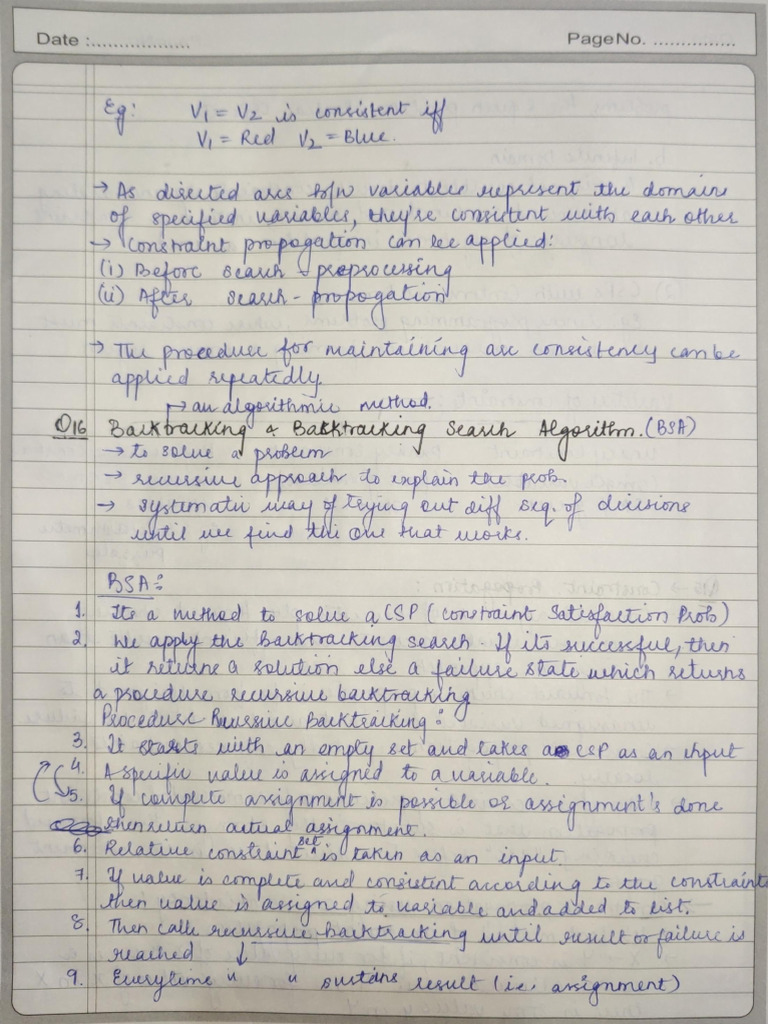 Date :.................. PageNo. ...............
Eg: V1 = V2 is consistent iff
V1 = Red V2 = Blue.
→ As directed arcs b/w variable represent the domain
of specified variables, they're consistent with each other
→ Constraint propogation can be applied:
(i) Before search - preprocessing
(ii) After search - propogation
→ The procedure for maintaining arc consistency can be
applied repeatedly.
↦ an algorithmic method.
Q16 Backtracking & Backtracking Search Algorithm. (BSA)
→ to solve a problem
→ recursive approach to explain the prob.
→ systematic way of trying out diff seq. of decisions
until we find the one that works.
BSA:
1. Its a method to solve a CSP (Constraint Satisfaction Prob)
2. We apply the Backtracking search. If its successful, then
it returns a solution else a failure state which returns
a procedure recursive backtracking
Procedure Recursive Backtracking:
3. It starts with an empty set and takes a CSP as an input
4. A specific value is assigned to a variable.
5. If complete assignment is possible or assignment's done
then return actual assignment.
6. Relative constraint set is taken as an input.
7. If value is complete and consistent according to the constraints
then value is assigned to variable and added to list.
8. Then calls recursive backtracking until result or failure is
reached ↓
9. Everytime " " result (i.e, assignment)